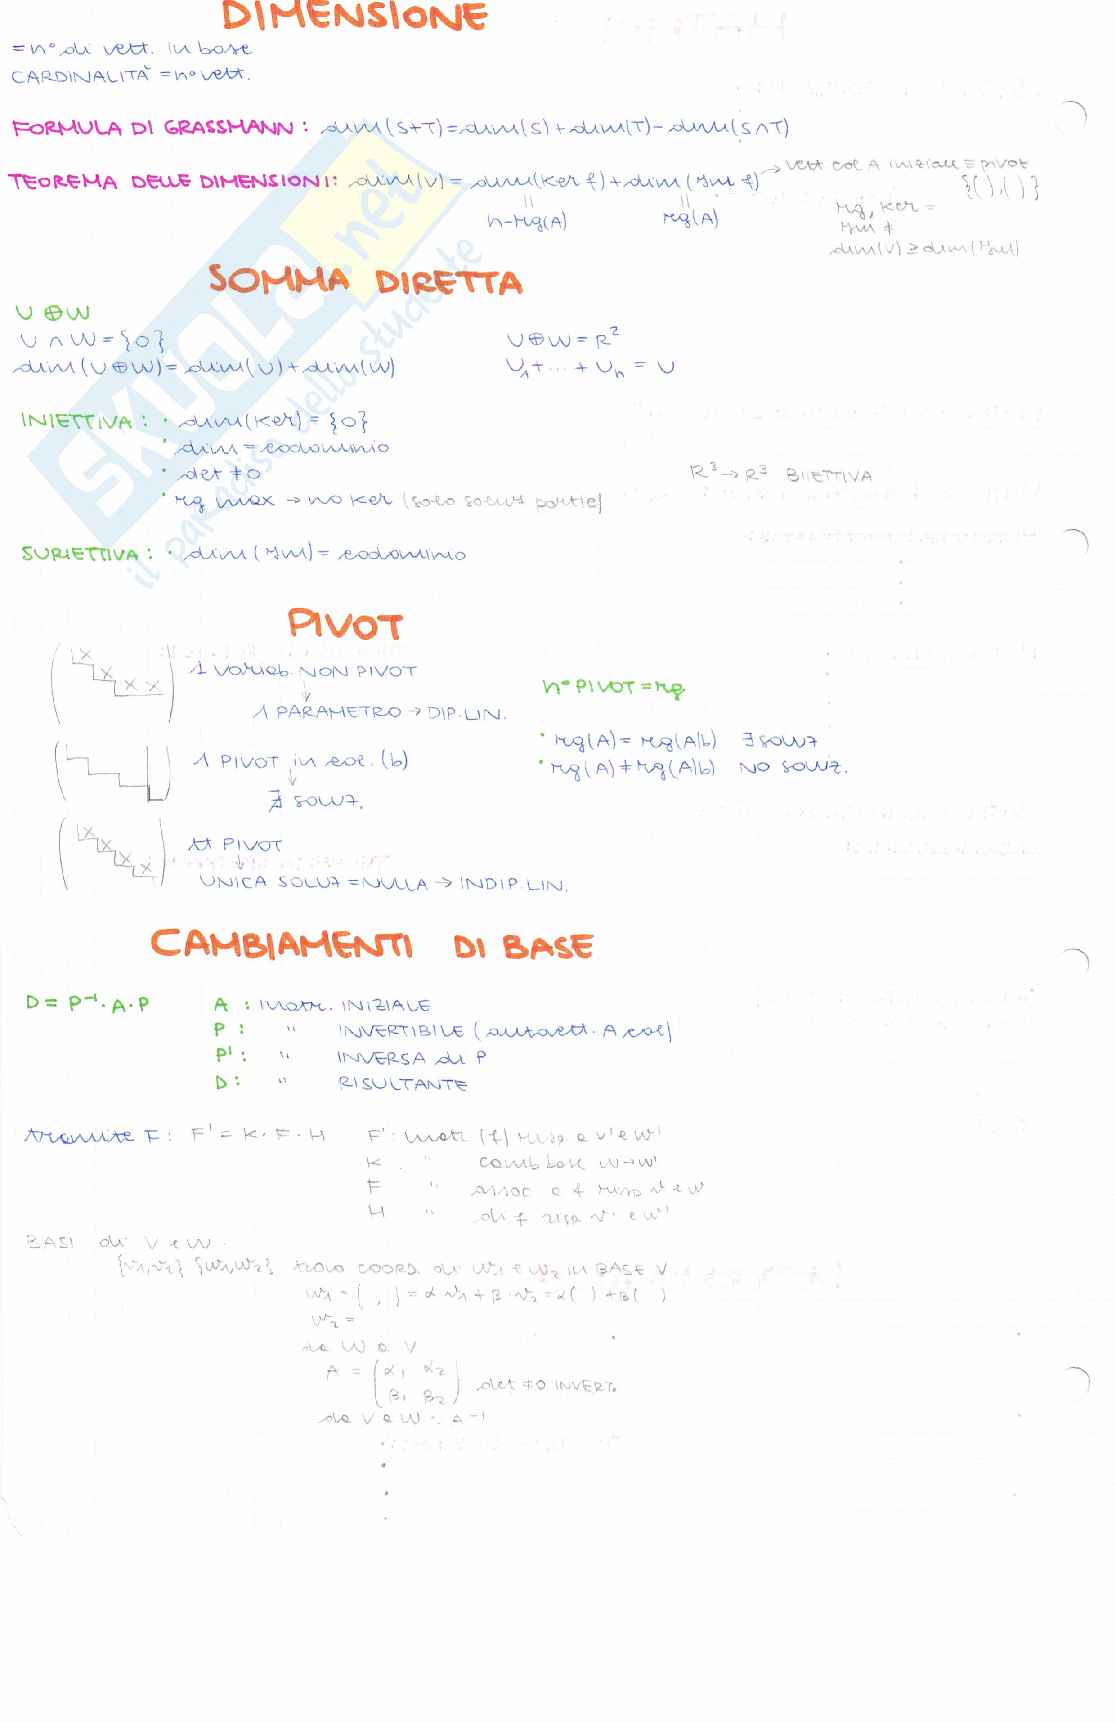 DIMENSIONE
= n° di vett. in base
CARDINALITÀ = n° vett.
FORMULA DI GRASSMANN: dim(S+T)=dim(S)+dim(T)-dim(S∩T)
TEOREMA DELLE DIMENSIONI: dim(V)=dim(Ker f)+dim(Im f) → vett col A iniziale ≡ pivot
{( ),( )}
n-rg(A)
rg(A)
rg, ker =
Im ≠
dim(V) ≥ dim(Im)
SOMMA DIRETTA
U ⊕ W
U ∩ W = {0}
U⊕W = R²
dim(U⊕W)=dim(U)+dim(W)
U₁+...+Uₙ = U
INIETTIVA: · dim(Ker)={0}
· dim = codominio
· det ≠0
R³→R³ BIIETTIVA
· rg max → no Ker (solo soluz partic)
SURIETTIVA: · dim(Im)= codominio
PIVOT
X X X X
1 variab. NON PIVOT
↓
1 PARAMETRO → DIP. LIN.
n° PIVOT = rg
1 PIVOT in col. (b)
↓
∄ SOLUZ.
· rg(A)= rg(A|b) ∃ SOLUZ
· rg(A)≠rg(A|b) NO SOLUZ.
X X X X
tt PIVOT
↓
UNICA SOLUZ = NULLA → INDIP. LIN.
CAMBIAMENTI DI BASE
D = P⁻¹·A·P
A : matr. INIZIALE
P : " INVERTIBILE (autovett. A col)
P¹ : " INVERSA di P
D : " RISULTANTE
tramite F: F' = K·F·H F': matr (f) risp a v' e w'
K " camb base w→w'
F " assoc a f risp v e w
H " di f risp v' e w'
BASI di V e W
{v₁,v₂} {w₁,w₂} trovo COORD. di w₁ e w₂ in BASE V
w₁ = ( , ) = α·v₁ + β·v₂ = α( ) + β( )
w₂ =
da W a V
A = (α₁ α₂
β₁ β₂) det ≠0 INVERT.
da V a W : A⁻¹
SKUOLA.net
il paradiso dello studente